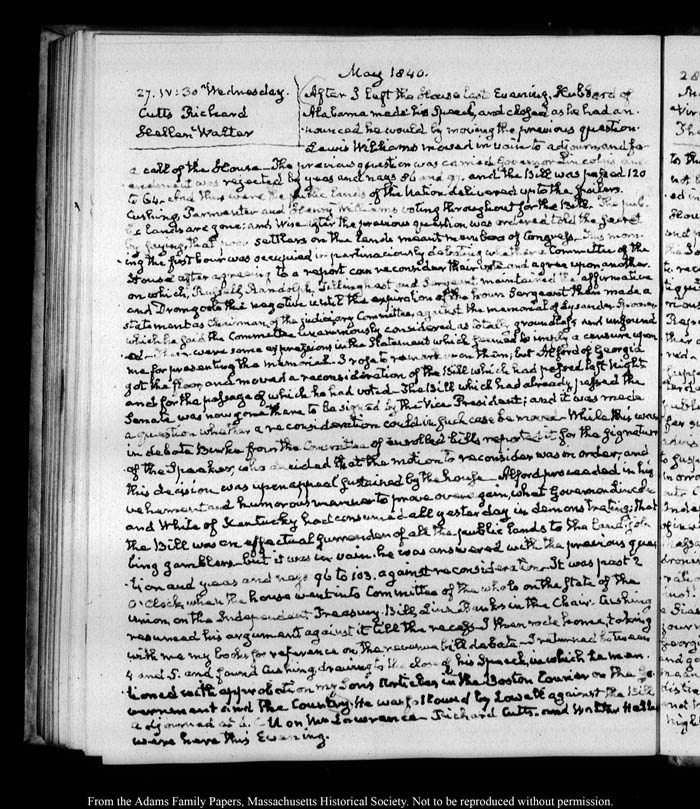 May 1840.
27. IV:30. Wednesday.
Cutts Richard
Hellen Walter
After I left the House last Evening, Hubbard of
Alabama made his Speech, and closed as he had an-
nounced he would by moving the previous question.
Lewis Williams moved in vain to adjourn, and for
a call of the House. The previous question was carried Governor Lincoln's am-
endment was rejected by yeas and nays 86 and 97, and the Bill was passed 120
to 64. And thus were the public lands of the Nation delivered up to the
Cushing, Parmenter and Henry Williams voting throughout for the Bill. The pub-
lic lands are gone: and Wise after the previous question was ordered told the secret
by saying that poor settlers on the lands meant members of Congress. This morn-
ing the first hour was occupied in pertinaciously debating whether a Committee of the
House after agreeing to a report can reconsider their vote and agree upon another.
on which, Russell, Randolph, Tillinghast and Sergeant maintained the affirmative
and Dromgoole the negative until the expiration of the hour. Sergeant then made a
statement as Chairman of the judiciary Committee, against the memorial of Lysander
which he said the Committee unanimously considered as totally groundless and unfound
ed. There were some expressions in the Statement which seemed to imply a censure upon
me for presenting the memorial. I rose to remark upon them; but Alford of Georgia
got the floor, and moved a reconsideration of the Bill which had passed last Night
and for the passage of which he had voted. The Bill which had already passed the
Senate was now gone there to be signed by the Vice President; and it was made
a question whether a reconsideration could in such case be moved. While this was
in debate from the Committee of enrolled bills reported it for the signature
of the Speaker, who decided that the motion to reconsider was in order; and
this decision was upon appeal sustained by the house. Alford proceeded in his
vehement and humorous manner to prove over again, what Governor Lincoln
and White of Kentucky had consumed all yesterday in demonstrating; that
the Bill was an effectual surrender of all the public lands to the land job
bing gamblers. but it was in vain. he was answered with the previous ques
tion and yeas and nays 96 to 103. against reconsideration. It was past 2
O'Clock, when the house went into Committee of the whole on the State of the
Union, on the Independent Treasury Bill, Linn Banks in the Chair. Cushing
resumed his argument against it till the recess. I then rode home, taking
with me my books for reference on the revenue bill debate. I returned between
4 and 5. and found Cushing drawing to the close of his Speech, in which he men-
tioned with approbation my Son's Articles in the Boston Courier on the Go-
vernment and the Country. He was followed by Lowell against the Bill
adjourned at Mr Lawrence. Richard Cutts, and Walter Hellen
were here this Evening.
From the Adams Family Papers, Massachusetts Historical Society. Not to be reproduced without permission.